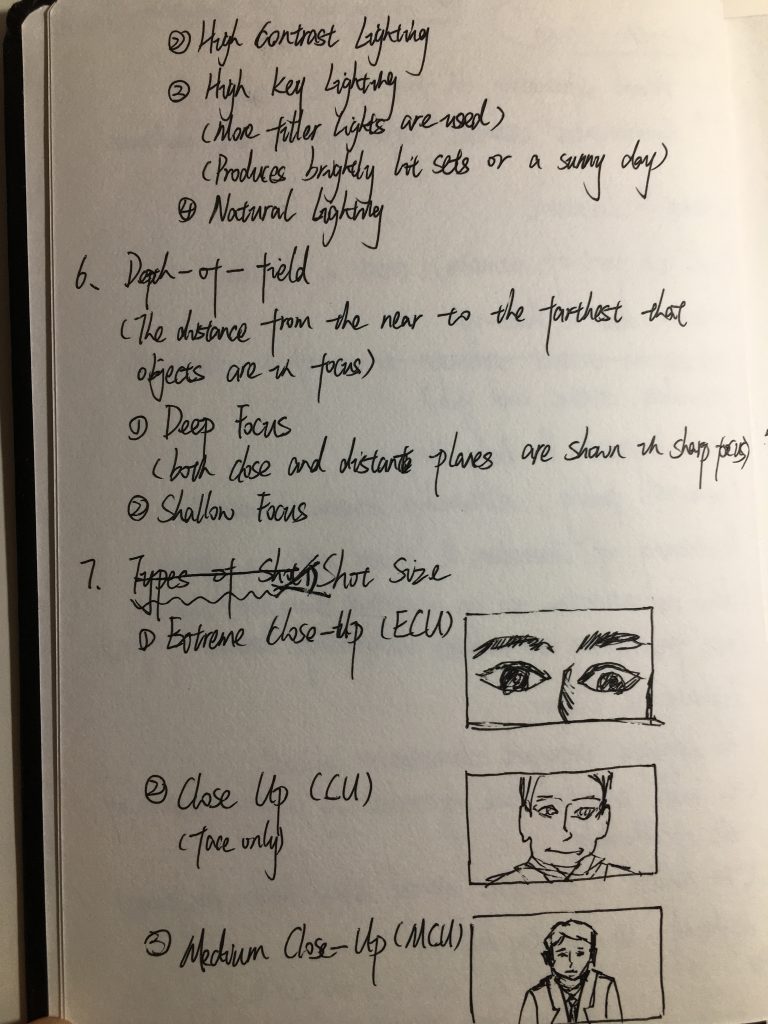 ② High Contrast Lighting
③ High Key Lighting
(More filler lights are used)
(Produces brightly lit sets or a sunny day)
④ Natural Lighting
6、Depth-of-field
(The distance from the near to the farthest that
objects are in focus)
① Deep Focus
(both close and distant planes are shown in sharp focus)
② Shallow Focus
7. Types of Shots Shot Size
① Extreme Close-Up (ECU)
② Close Up (CU)
(Face only)
③ Medium Close-Up (MCU)